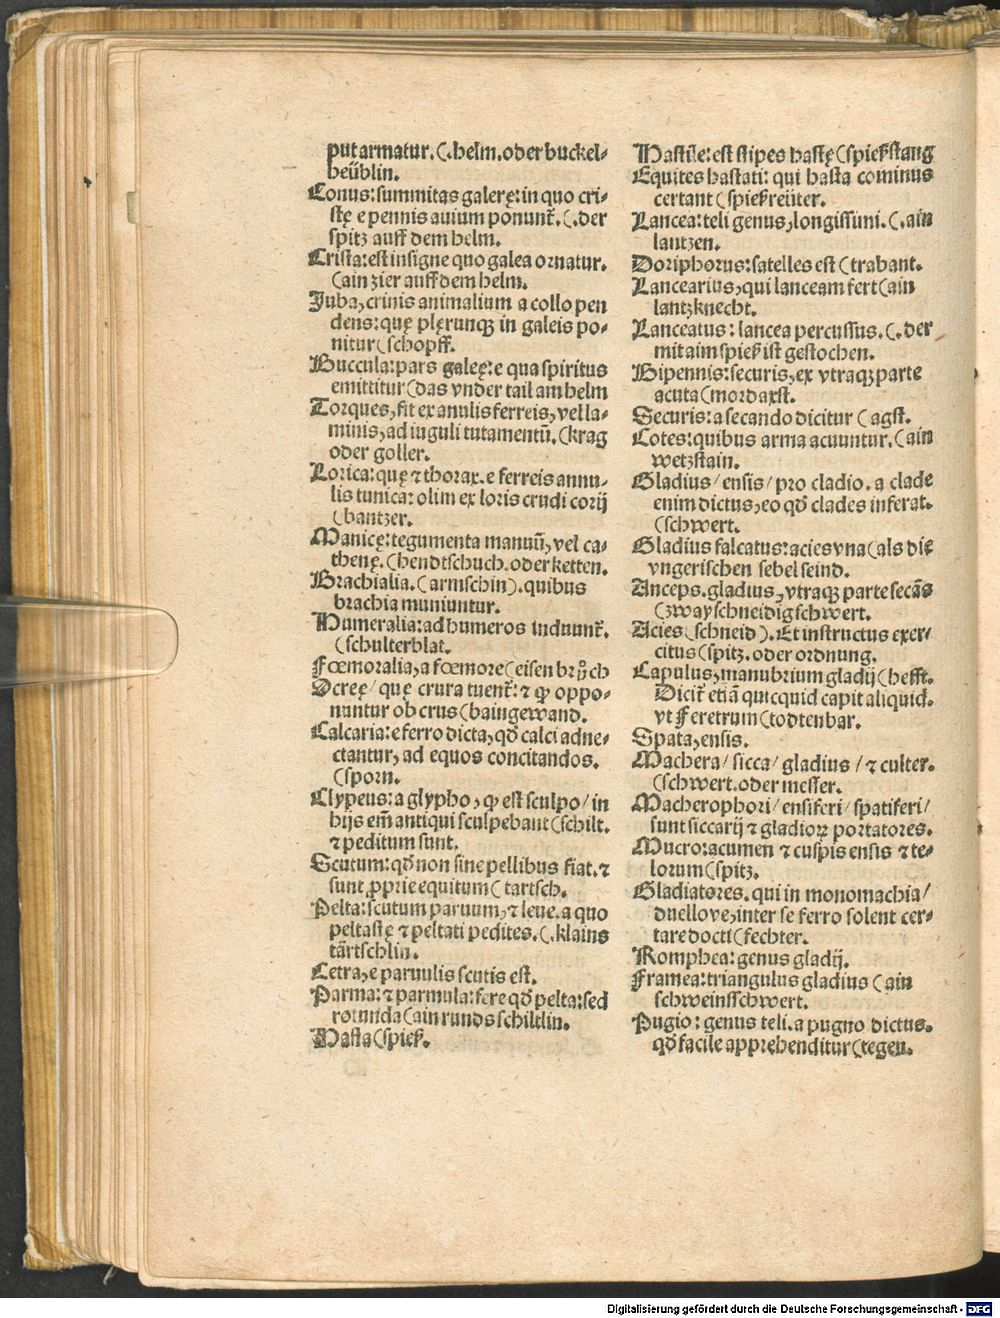 put armatur. (.helm. oder buckel-
heüblin.
Conus: summitas galerę: in quo cri-
stę e pennis auium ponunt̃. (.der
spitz auff dem helm.
Crista: est insigne quo galea ornatur.
(ain zier auff dem helm.
Juba, crinis animalium a collo pen
dens: quę plęrunqꝫ in galeis po-
nitur (schopff.
Buccula: pars galeę: e qua spiritus
emittitur (das vnder tail am helm
Torques, fit ex anulis ferreis, vel la-
minis, ad iuguli tutamentū. (krag
oder goller.
Lorica: quę ⁊ thorax. e ferreis annu-
lis tunica: olim ex loris crudi corij
(bantzer.
Manicę: tegumenta manuū, vel ca-
thenę. (hendtschuch. oder ketten.
Brachialia. (armschin). quibus
brachia muniuntur.
Humeralia: ad humeros induunt̃.
(schulterblat.
Fœmoralia, a fœmore (eisen brůch
Ocreę / quę crura tuent̃: ⁊ ꝙ oppo-
nuntur ob crus (baingewand.
Calcaria: e ferro dicta, qđ calci adne-
ctantur, ad equos concitandos.
(sporn.
Clypeus: a glypho, ꝙ est sculpo / in
hijs em̄ antiqui sculpebant (schilt.
⁊ peditum sunt.
Scutum: qđ non sine pellibus fiat. ⁊
sunt ꝓprie equitum (tartsch.
Pelta: scutum paruum, ⁊ leue. a quo
peltastę ⁊ peltati pedites. (.klains
tärtschlin.
Cetra, e paruulis scutis est.
Parma: ⁊ parmula: fere qđ pelta: sed
rotunda (ain runds schiltlin.
Hasta (spieß.
Hastile: est stipes hastę (spießstang
Equites hastati: qui hasta cominus
certant (spießreüter.
Lancea: teli genus, longissimi. (.ain
lantzen.
Doriphorus: satelles est (trabant.
Lancearius, qui lanceam fert (ain
lantzknecht.
Lanceatus: lancea percussus. (.der
mit aim spieß ist gestochen.
Bipennis: securis, ex vtraqꝫ parte
acuta (mordaxst.
Securis: a secando dicitur (agst.
Cotes: quibus arma acuuntur. (ain
wetzstain.
Gladius / ensis / pro cladio. a clade
enim dictus, eo qđ clades inferat.
(schwert.
Gladius falcatus: acies vna (als die
vngerischen sebel seind.
Anceps. gladius, vtraqꝫ parte secās
(zwayschneidig schwert.
Acies (schneid). Et instructus exer-
citus (spitz. oder ordnung.
Capulus, manubrium gladij (hefft.
Dicit̃ etiā quicquid capit aliquid.
vt Feretrum (todtenbar.
Spata, ensis.
Machera / sicca / gladius / ⁊ culter.
(schwert. oder messer.
Macherophori / ensiferi / spatiferi /
sunt siccarij ⁊ gladioꝝ portatores.
Mucro: acumen ⁊ cuspis ensis ⁊ te-
lorum (spitz.
Gladiatores. qui in monomachia /
duellove, inter se ferro solent cer-
tare docti (fechter.
Romphea: genus gladij.
Framea: triangulus gladius (ain
schweinsschwert.
Pugio: genus teli. a pugno dictus.
qđ facile apprehenditur (tegen.
Digitalisierung gefördert durch die Deutsche Forschungsgemeinschaft - DFG